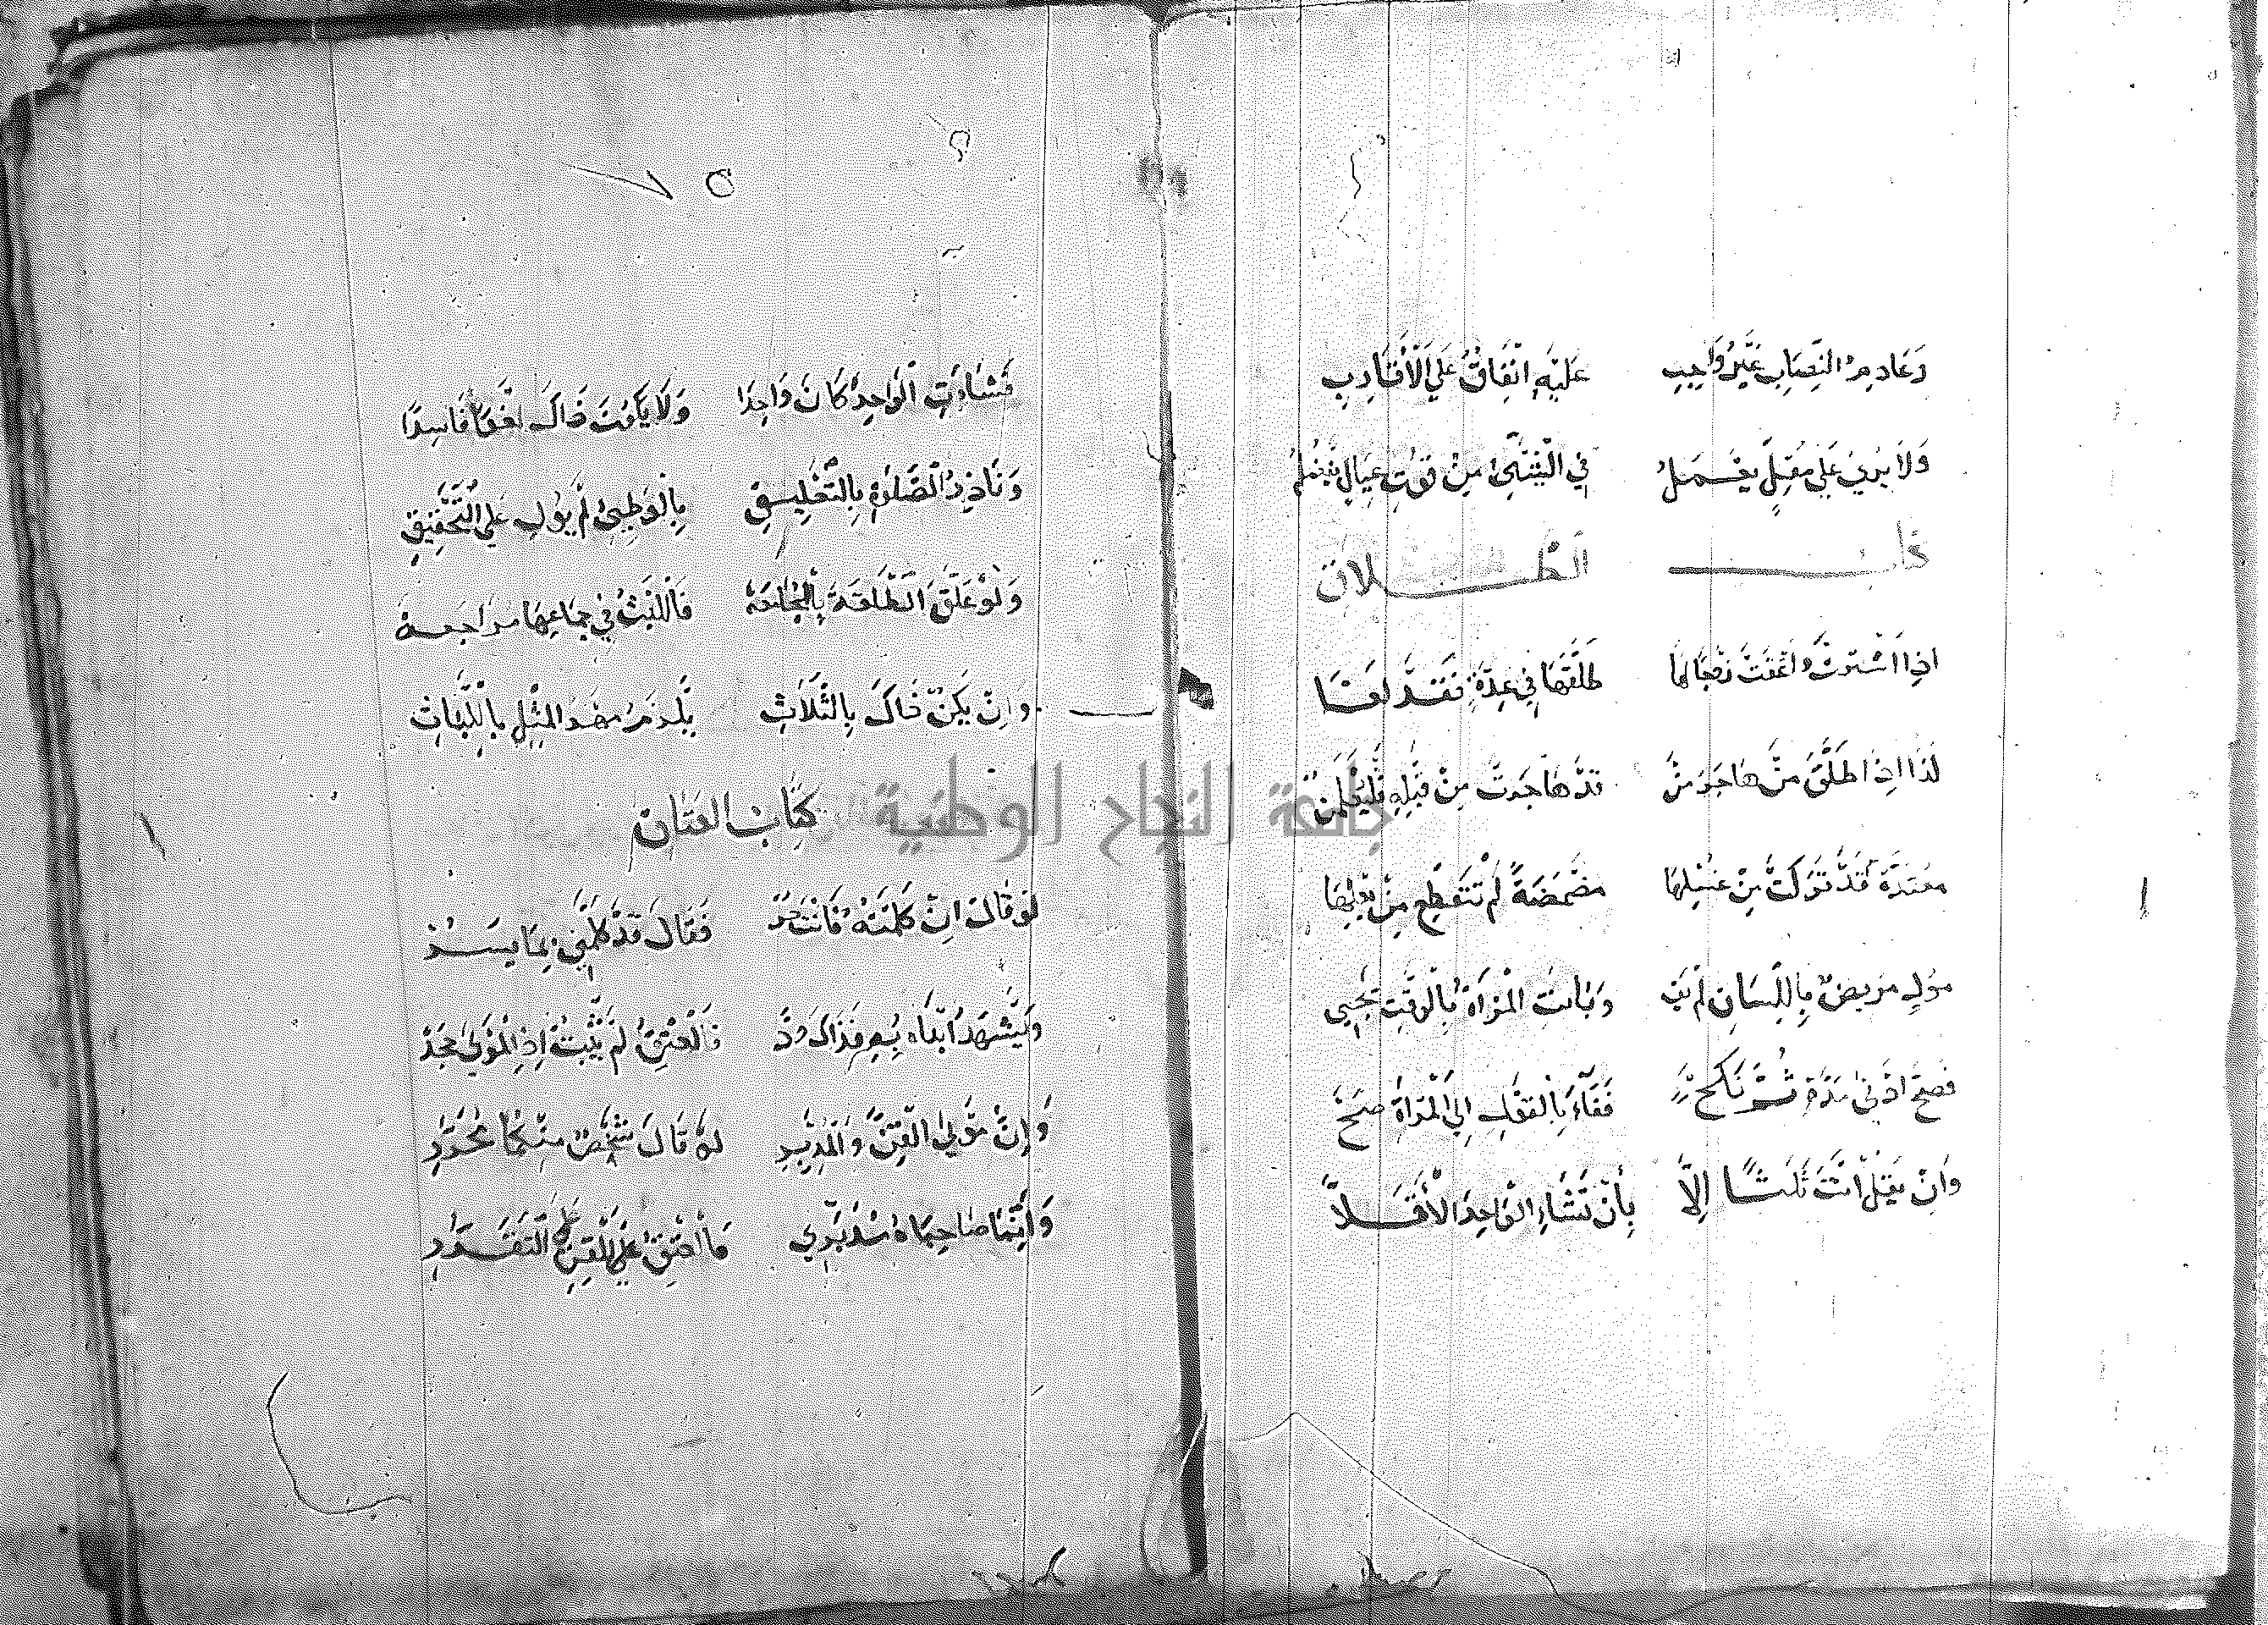 وَعَادِمُ النِّصَابِ غَيْرُ وَاجِبِ عَلَيْهِ انْفَاقٌ عَلَى الْأَقَارِبِ
وَلَا يُرَى عَلَى مُقِلٍّ يَعْمَلُ فِي الْبَيْتِ شَيْءٌ مِنْ قُوتِ عِيَالٍ
كتاب الطلاق
اذا اشْتَرَتْ وَاعْتَقَتْ زَوْجًا لَهَا طَلَّقَهَا فِي عِدَّةٍ فَقَدْ لَغَا
كَذَا اِذَا طَلَّقَ مَنْ هَاجَرَ مَنْ قَدْ هَاجَرَتْ مِنْ قَبْلِهِ فَلْيُعْلَمَنْ
مُعْتَدَّةٌ قَدْ تَرَكَتْ مِنْ غُسْلِهَا مَضْمَضَةً لَمْ تَنْقَطِعْ مِنْ بَعْلِهَا
مُولٍ مَرِيضٌ بِاللِّسَانِ لَمْ يَفِ وَبَانَتِ الْمَرْأَةُ بِالْوَقْتِ
فَصَحَّ اذْ فِي مُدَّةٍ ثُمَّ نَكَحْ فَفَاءَ بِالْقَوْلِ اِلَى الْمَرْأَةِ صَحّْ
وَاِنْ يَقُلْ اَنْتِ ثَلَثًا اِلَّا بِأَنْ تَشَاءِ الْوَاحِدَ الْأَقَلَّا
فَشَاءَتِ الْوَاحِدَ كَانَ وَاحِدَا وَلَا يَكُونُ ذَاكَ لَغْوًا فَاسِدَا
وَنَاذِرُ الصَّلَاةِ بِالتَّعْلِيقِ بِالْوَطْئِ لَمْ يُولِ عَلَى التَّحْقِيقِ
وَلَوْ عَلَّقَ الطَّلْقَةَ بِالْمُجَامَعَهْ فَاللُّبْثُ فِي جِمَاعِهَا مُرَاجَعَهْ
وَاِنْ يَكُنْ ذَاكَ بِالثَّلَاثِ يَلْزَمُ مَهْرُ الْمِثْلِ بِاللَّبَاثِ
كِتَابُ الْعَتَاقْ
لَوْ قَالَ اِنْ كَلَّمْتَهُ فَأَنْتَ حُرّْ فَقَالَ قَدْ كَلَّمَنِي بِمَا يَسُرّْ
وَيَشْهَدُ ابْنَاهُ بِهِ فَذَاكَ رَدّْ فَالْعِتْقُ لَمْ يَثْبُتْ اِذِ الْمَوْلَى جَحَدْ
وَاِنَّ مَوْلَى الْقِنِّ وَالْمُدَبَّرِ لَوْ قَالَ شَخْصٌ مِنْكُمَا مُحَرَّرِ
وَاَيُّمَا صَاحِبَاهُ فَالْعِتْقُ
جامعة النجاح الوطنية